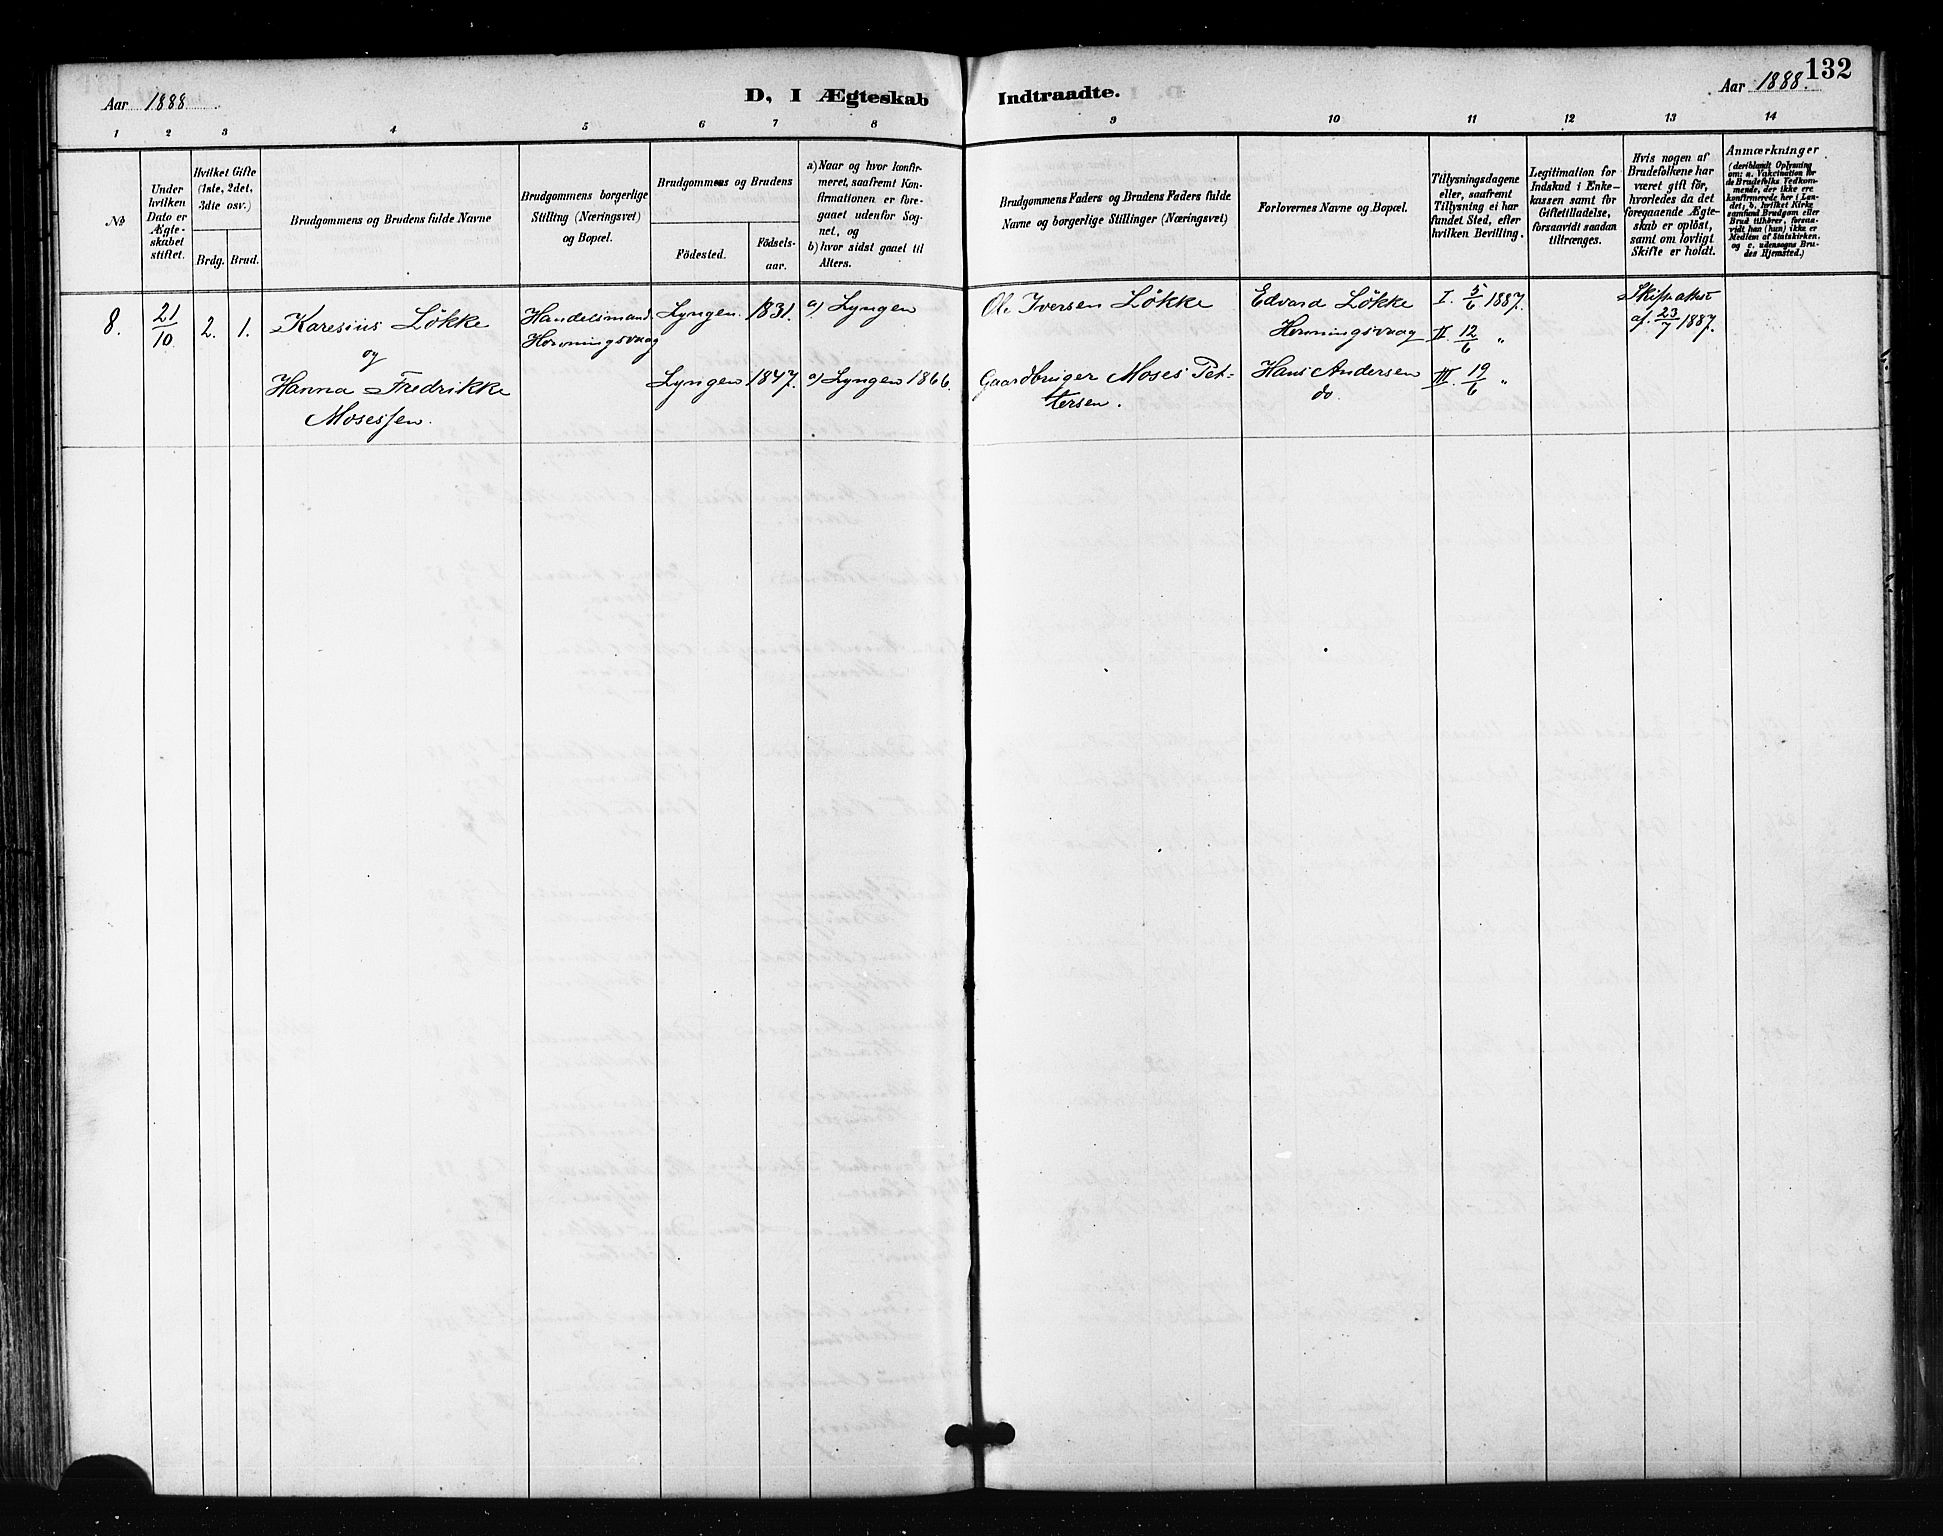 132
Aar 1888.
D. I Ægteskab Indtraadte.
Aar 1888.
1 2 3 4 5 6 7 8 9 10 11 12 13 14
No
Under
hvilken
Dato er
Ægte-
skabet
stiftet.
Hvilket Gifte
(1ste, 2det,
3die osv.)
Brdg. Brud.
Brudgommens og Brudens fulde Navne
Brudgommens borgerlige
Stilling (Næringsvei)
og Bopæl.
Brudgommens og Brudens
Fødested.
Fødsels-
aar.
a) Naar og hvor konfir-
meret, saafremt Kon-
firmationen er fore-
gaaet udenfor Sog-
net, og
b) hvor sidst gaaet til
Alters.
Brudgommens Faders og Brudens Faders fulde
Navne og borgerlige Stillinger (Næringsvei)
Forlovernes Navne og Bopæl.
Tillysningsdagene
eller, saafremt
Tillysning ei har
fundet Sted, efter
hvilken Bevilling.
Legitimation for
Indskud i Enke-
kassen samt for
Giftetilladelse,
forsaavidt saadan
tiltrænges.
Hvis nogen af
Brudefolkene har
været gift før,
hvorledes da det
foregaaende Ægte-
skab er opløst,
samt om lovligt
Skifte er holdt.
Anmærkninger
(deriblandt Oplysning
om: a. Vakcination for
de Brudefolks Vedkom-
mende, der ikke ere
konfirmerede her i Lan-
det, b. hvilket Kirke
samfund Brudgom eller
Brud tilhører, forsaa-
vidt han (hun) ikke er
Medlem af Statskirken.
og c. udensogns Bru-
des Hjemsted.)
8. 21/10 2. 1. Karesius Løkke
og
Hanna Fredrikke
Mosessen.
Handelsmand
Honningsvaag
Lyngen. 1831. a) Lyngen
Lyngen 1847. a) Lyngen 1866.
Ole Iversen Løkke
Gaardbruger Moses Pet-
tersen.
Edvard Løkke
Honningsvaag
Hans Andersen
do.
I. 5/6 1887.
II 12/6 "
III. 19/6 "
af. 23/7 1887.